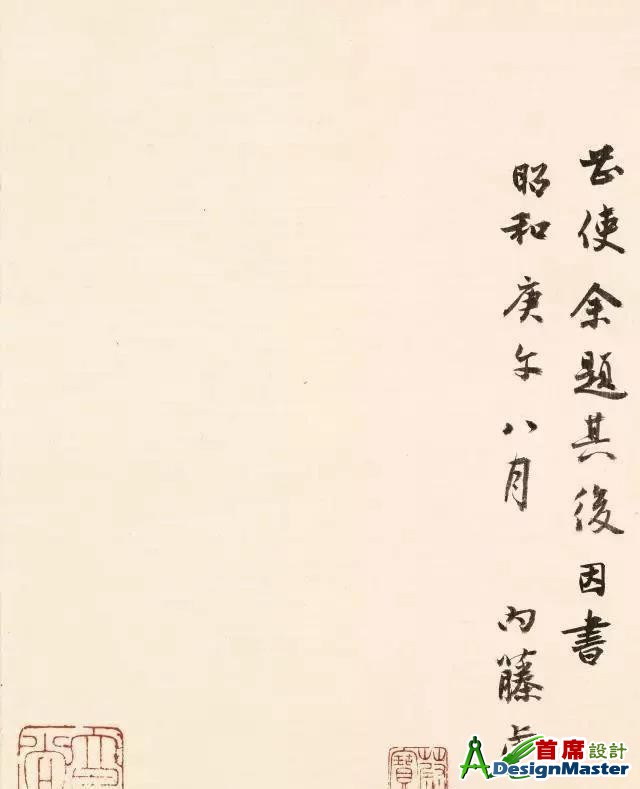 使余題其後因書
昭和庚午八月 内藤虎
寶
首席設計
DesignMaster